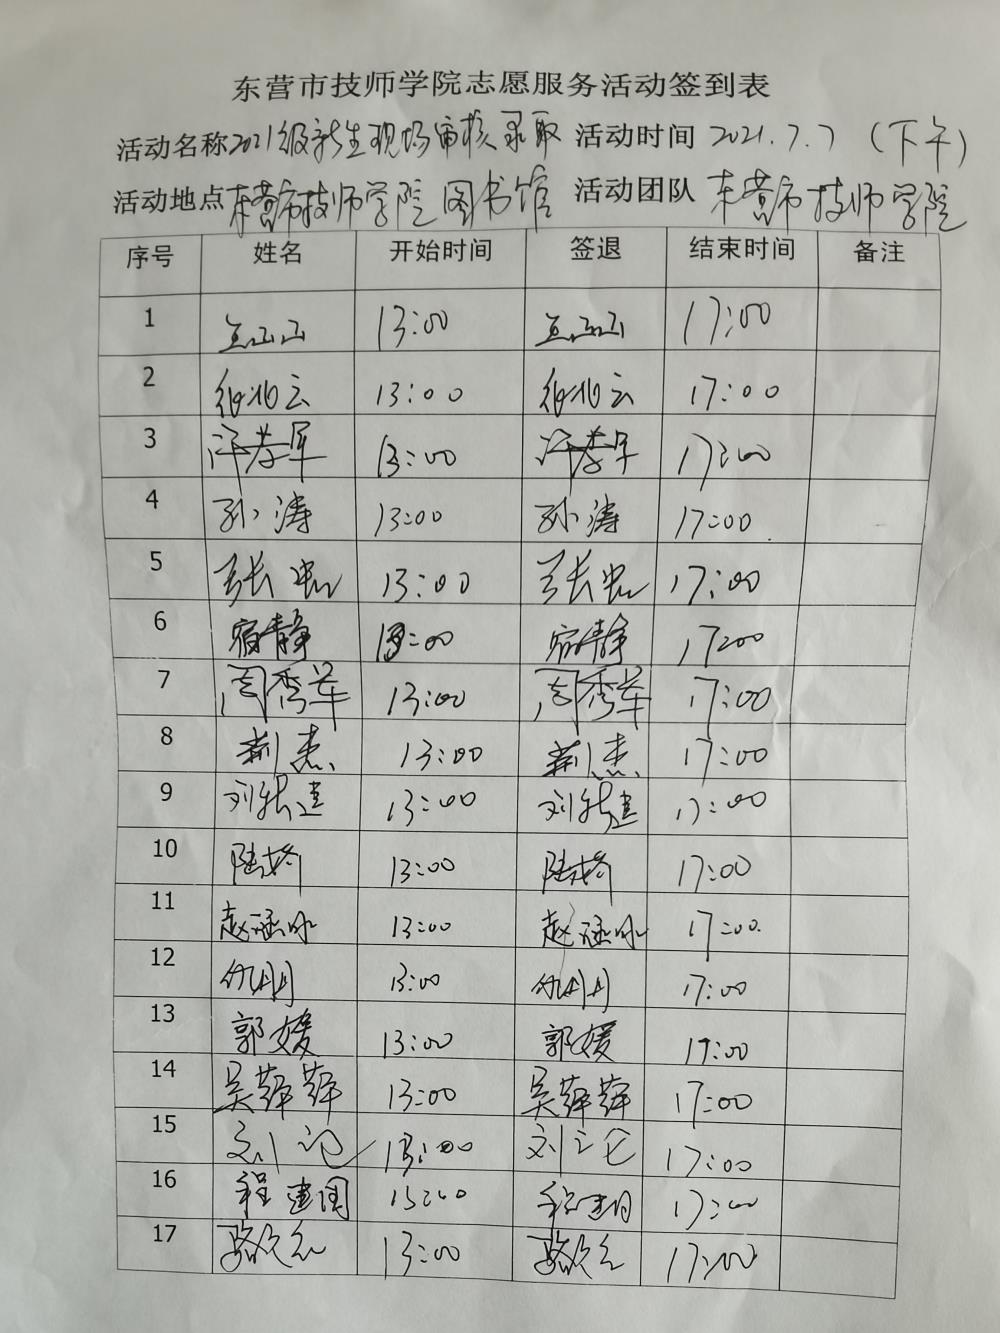 东营市技师学院志愿服务活动签到表
活动名称2021级新生现场审核录取 活动时间 2021.7.7 (下午)
活动地点东营市技师学院图书馆 活动团队 东营市技师学院
序号 姓名 开始时间 签退 结束时间 备注
1 13:00 17:00
2 13:00 17:00
3 13:00 17:00
4 孙涛 13:00 孙涛 17:00
5 13:00 17:00
6 宿静 13:00 宿静 17:00
7 周秀华 13:00 周秀华 17:00
8 荆杰 13:00 荆杰 17:00
9 13:00 17:00
10 陆娇 13:00 陆娇 17:00
11 赵涵冰 13:00 赵涵冰 17:00
12 13:00 17:00
13 郭媛 13:00 郭媛 17:00
14 吴萍萍 13:00 吴萍萍 17:00
15 刘论 13:00 刘论 17:00
16 程建国 13:00 程建国 17:00
17 13:00 17:00